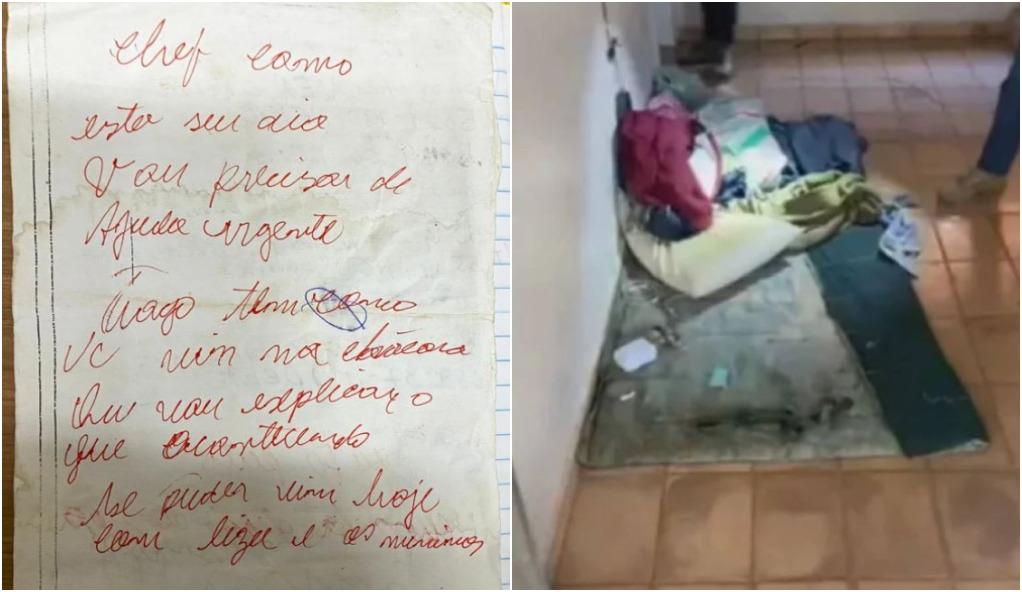 chef como
esta seu dia
Vou precisar de
Ajuda urgente
tem como
VC vim na chácara
vou explicar o
que acontecendo
se puder vim hoje
com e os meninos